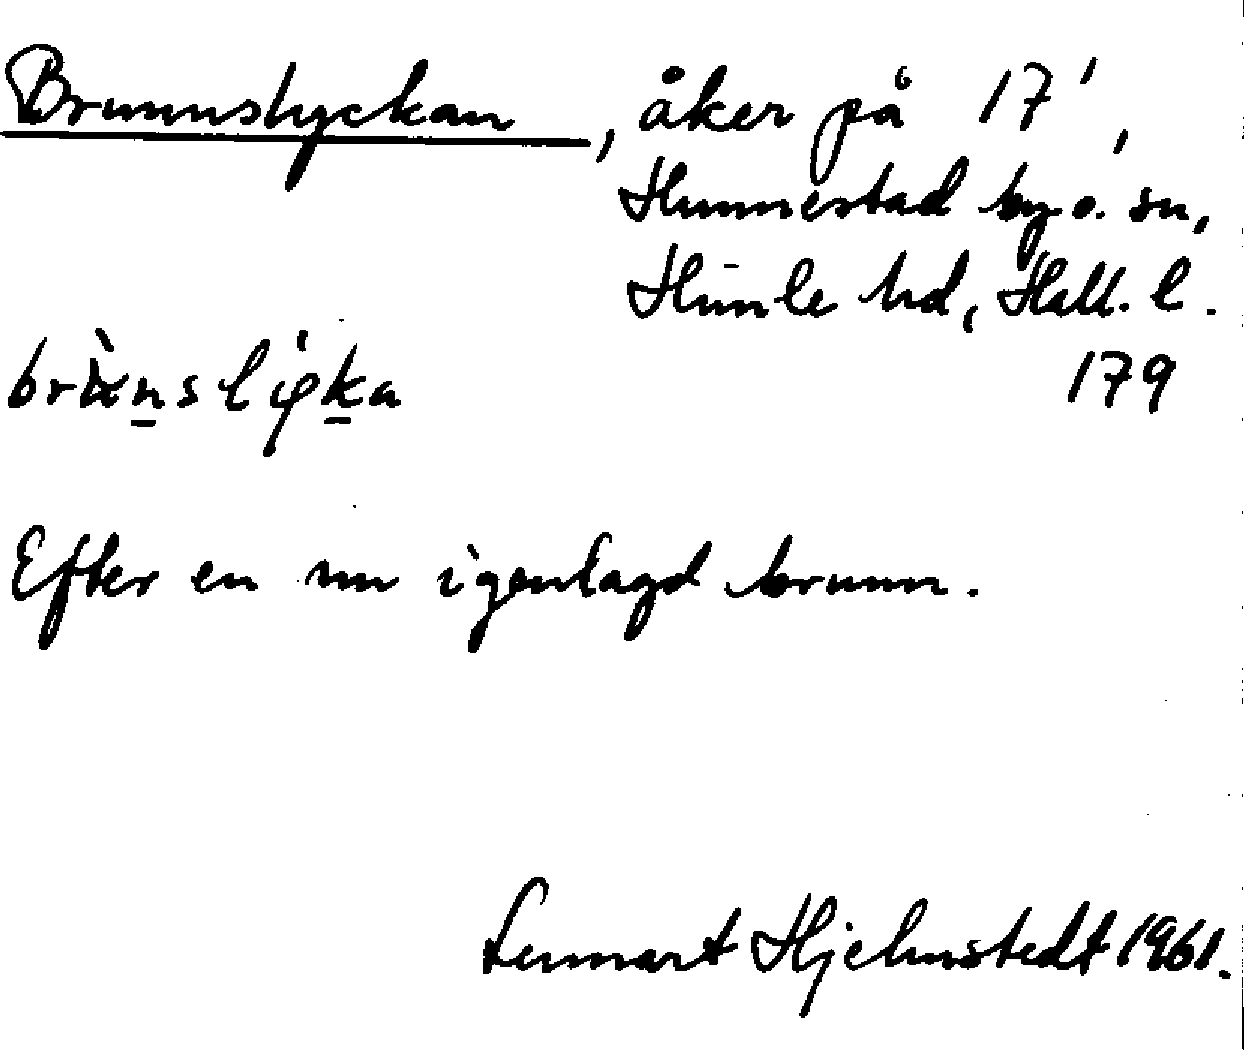 Brunnslyckan, åker på 17¹,
Hunnestad by o. sn,
Himle hd, Hall. l.
179
Efter en nu igenlagd brunn.
Lennart Hjelmstedt 1961.